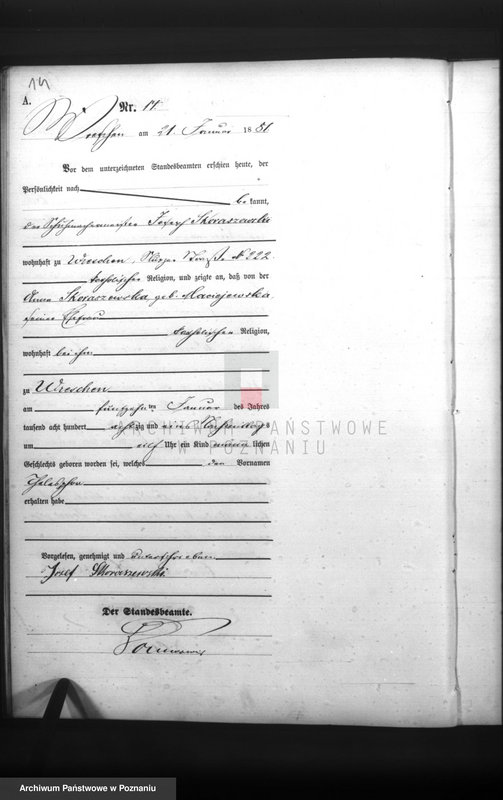 14
A.
Nr. 14.
Wreschen am 21. Januar 1881
Vor dem unterzeichneten Standesbeamten erschien heute, der
Persönlichkeit nach
be kannt,
der Schuhmachermeister Joseph Skoraszewski
wohnhaft zu Wreschen, Straße № 222
katholischer Religion, und zeigte an, daß von der
Anna Skoraszewska geb. Maciejewska
seiner Ehefrau
katholischer Religion,
wohnhaft bei ihm
zu Wreschen
am fünfzehnten Januar des Jahres
tausend acht hundert achtzig und eins Nachmittags
um elf Uhr ein Kind männlichen
Geschlechts geboren worden sei, welches den Vornamen
erhalten habe
ARCHIWUM PAŃSTWOWE
W POZNANIU
Vorgelesen, genehmigt und unterschrieben
Josef Skoraszewski
Der Standesbeamte.
Archiwum Państwowe w Poznaniu